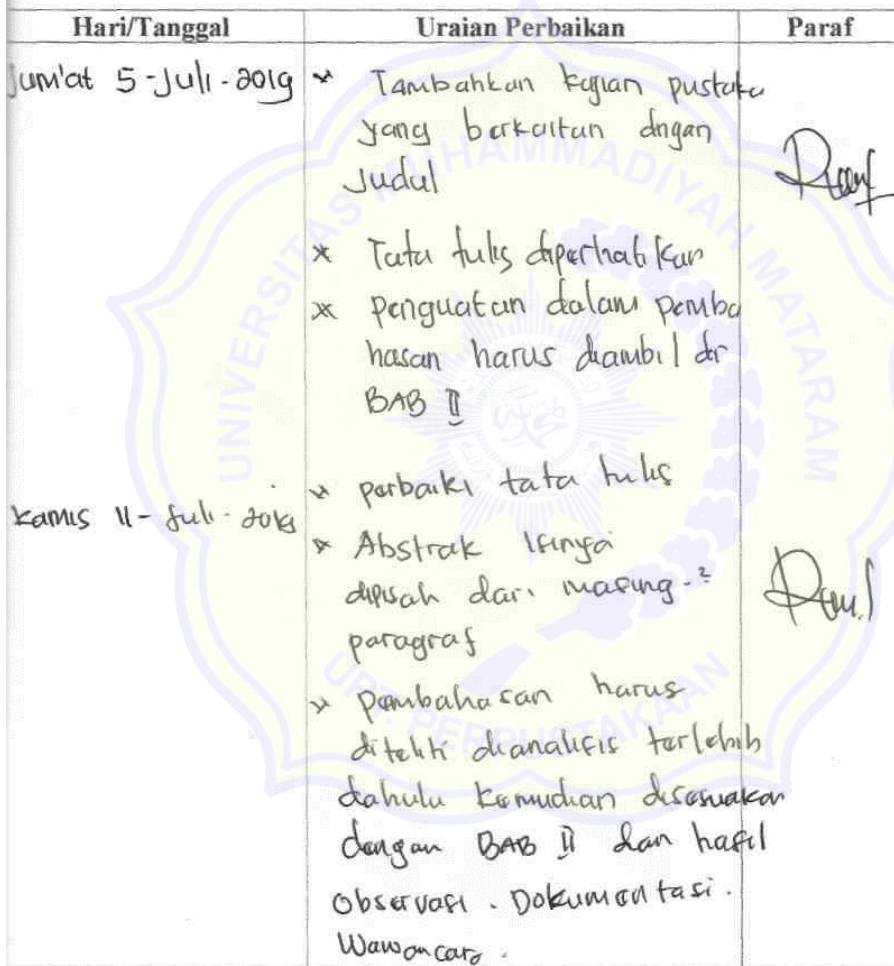 Hari/Tanggal Uraian Perbaikan Paraf
Jum'at 5-Juli-2019 * Tambahkan kajian pustaka
yang berkaitan dngan
Judul
* Tata tulis diperhatikan
* Penguatan dalam pemba
hasan harus diambil dr
BAB II
* perbaiki tata tulis
Kamis 11-Juli-2019
* Abstrak Isinya
dipisah dari masing-²
paragraf
* pembahasan harus
diteliti dianalisis terlebih
dahulu kemudian disesuaikan
dengan BAB II dan hasil
observasi. Dokumentasi.
Wawancara.
UNIVERSITAS MUHAMMADIYAH MATARAM
UPT. PERPUSTAKAAN